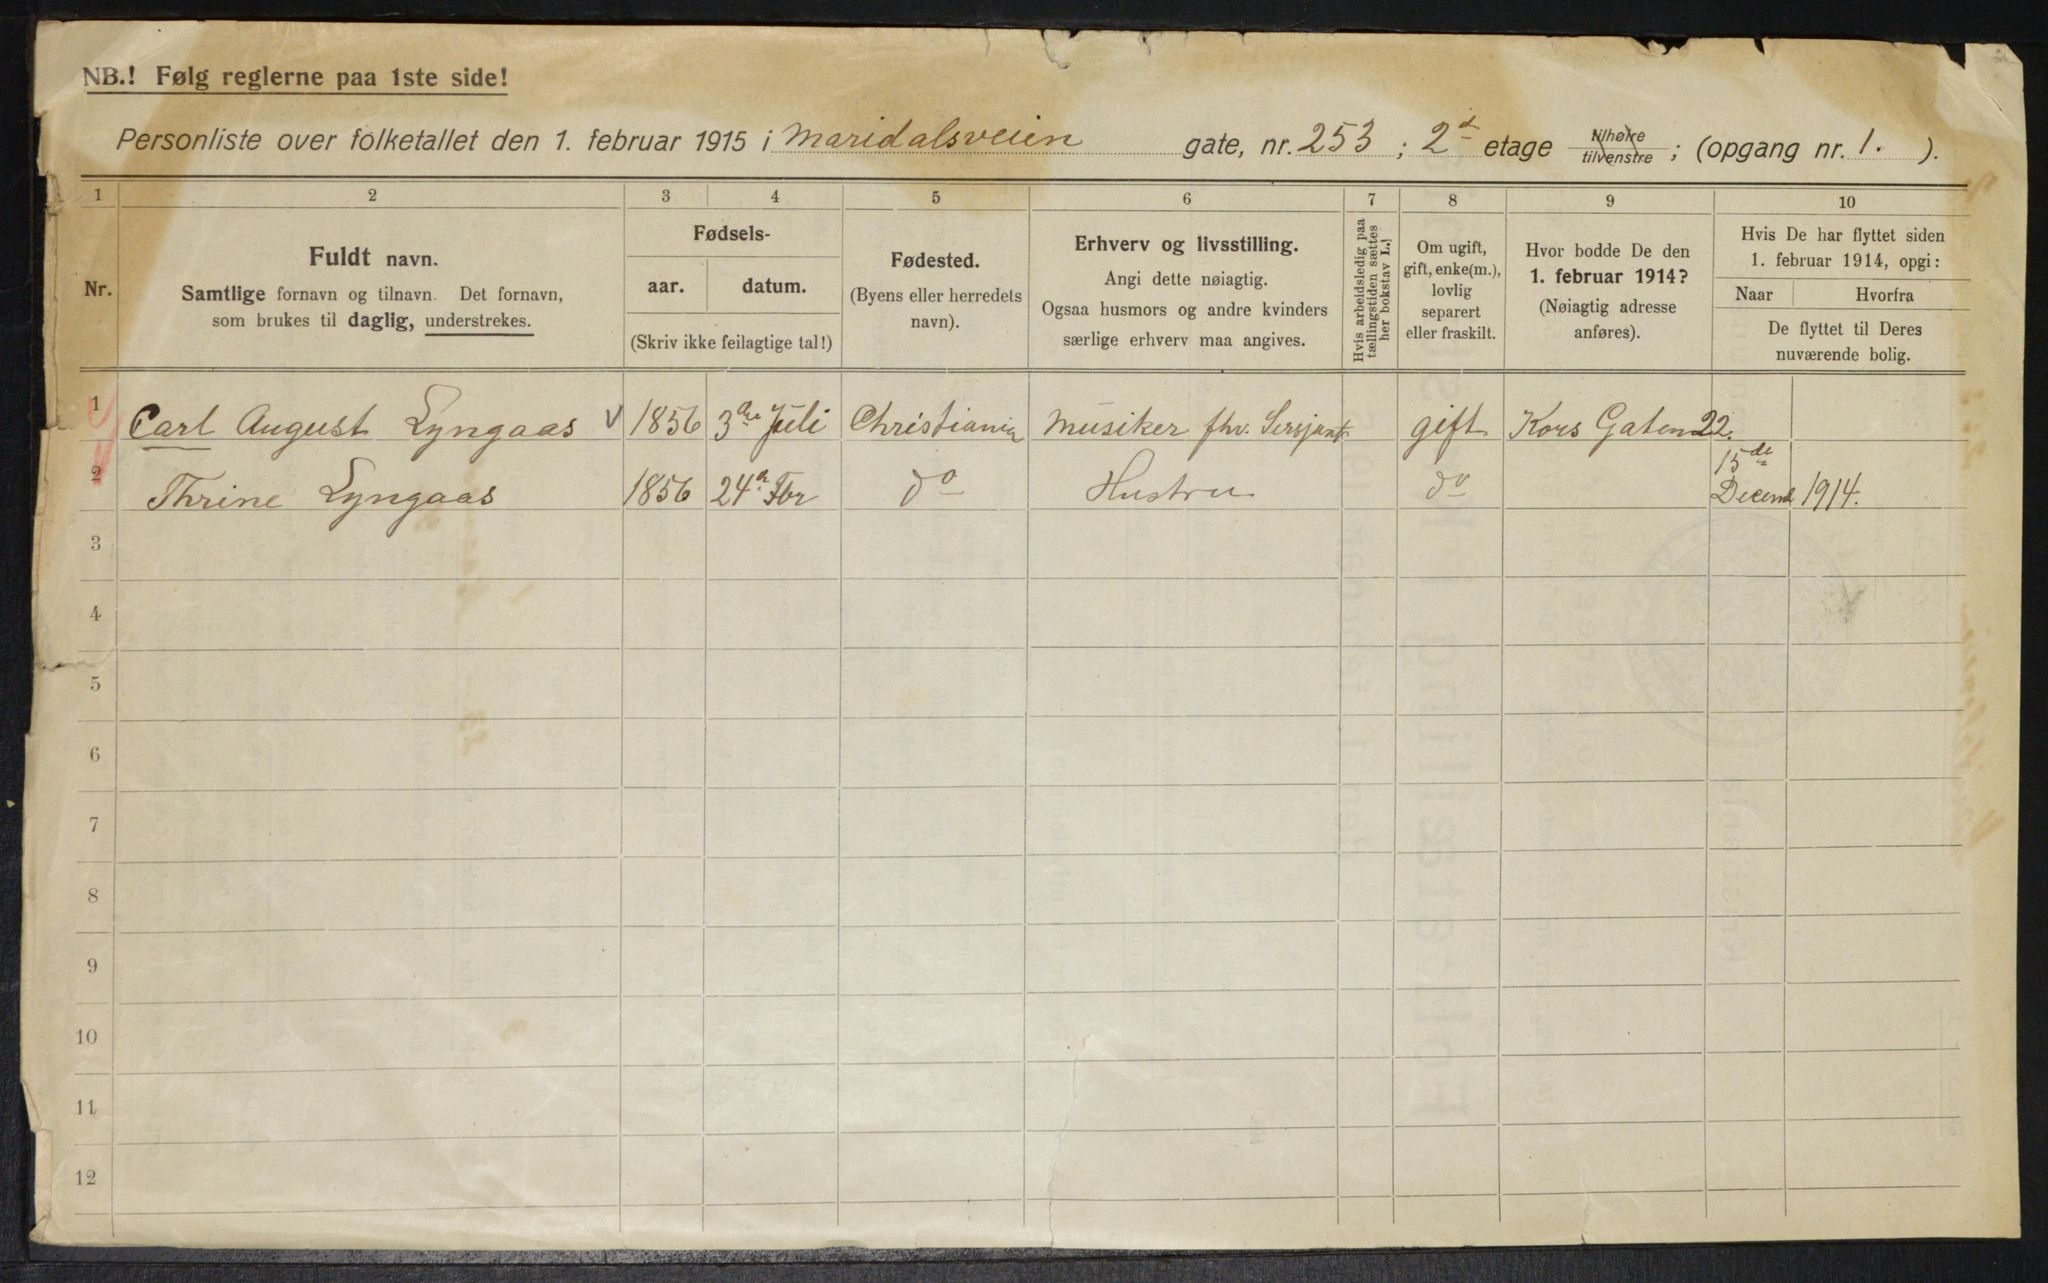 NB.! Følg reglerne paa 1ste side!
Personliste over folketallet den 1. februar 1915 i Maridalsveien gate, nr. 253 ; 2d etage tilhøire tilvenstre ; (opgang nr. 1. ).
1 2 3 4 5 6 7 8 9 10
Nr.
Fuldt navn.
Samtlige fornavn og tilnavn. Det fornavn,
som brukes til daglig, understrekes.
Fødsels-
aar. datum.
(Skriv ikke feilagtige tal!)
Fødested.
(Byens eller herredets
navn).
Erhverv og livsstilling.
Angi dette nøiagtig.
Ogsaa husmors og andre kvinders
særlige erhverv maa angives.
Hvis arbeidsledig paa
tællingstiden sættes
her bokstav L.)
Om ugift,
gift, enke(m.),
lovlig
separert
eller fraskilt.
Hvor bodde De den
1. februar 1914?
(Nøiagtig adresse
anføres).
Hvis De har flyttet siden
1. februar 1914, opgi:
Naar Hvorfra
De flyttet til Deres
nuværende bolig.
1 Carl August Lyngaas 1856 3die Juli Christiania Musiker fhv. Sersjant gift Kors Gaten 22.
2 Thrine Lyngaas 1856 24d Fbr do Hustru do 15de
Decemb 1914.
3
4
5
6
7
8
9
10
11
12